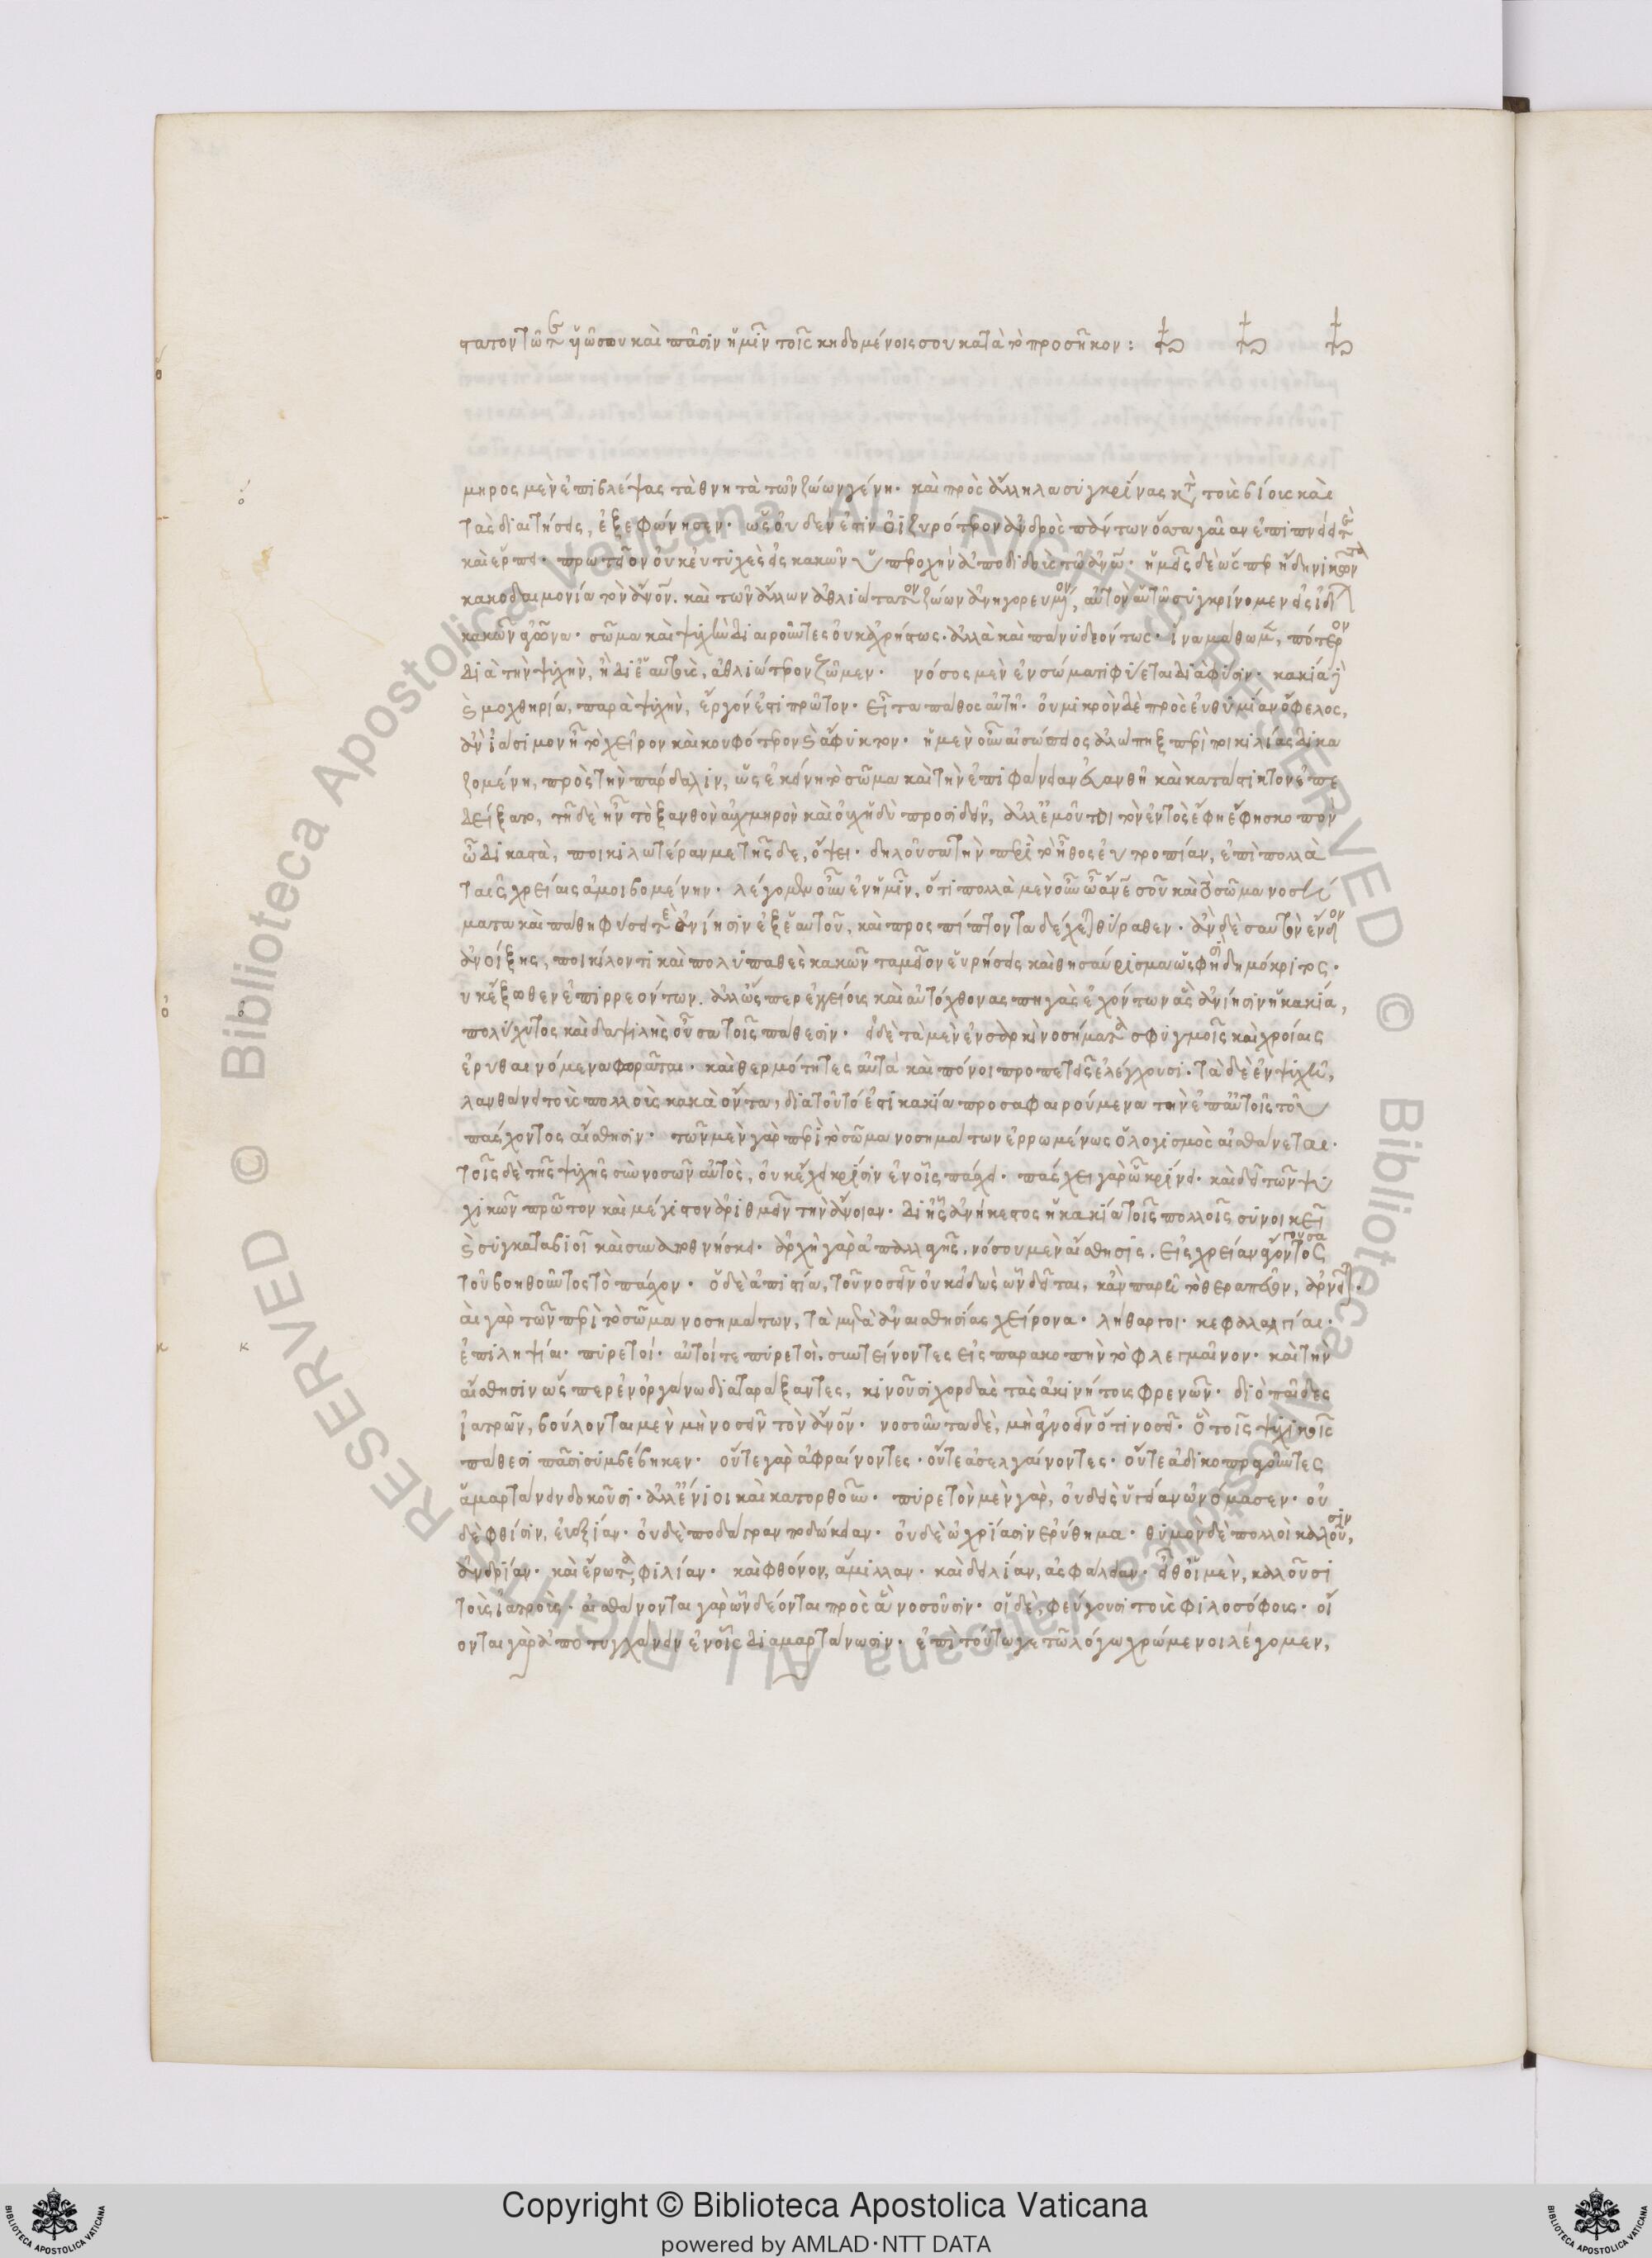 στατον τῷ τε ὑῷ σου καὶ πᾶσιν ἡμῖν τοῖς κηδομένοις σου κατὰ τὸ προσῆκον :
μηρος μὲν ἐπιβλέψας τὰ θνητὰ τῶν ζώων γένη· καὶ πρὸς ἄλληλα συγκρίνας κατὰ τοὺς βίους καὶ
τὰς διαιτήσεις, ἐξεφώνησεν· ὡς οὐδέν ἐστιν ὀιζυρότερον ἀνδρὸς πάντων ὅσσα γαῖαν ἐπιπνείει τε
καὶ ἕρπει· πρωτεῖον οὐκ εὐτυχὲς εἰς κακῶν ὑπεροχὴν ἀποδιδοὺς τῷ ἀνῳ· ἡμεῖς δὲ ὥσπερ ἤδη νικῶντα
κακοδαιμονία τὸν ἄνον. καὶ τῶν ἄλλων ἀθλιώτατον ζώων ἀνηγορευμένον, αὐτὸν αὑτῷ συγκρίνομεν εἰς ἰδίων
κακῶν ἀγῶνα· σῶμα καὶ ψυχὴν διαιροῦντες οὐκ ἀχρήστως. ἀλλὰ καὶ πάνυ δεόντως· ἵνα μάθωμεν, πότερον
διὰ τὴν ψυχὴν, ἢ δι' ἑαυτοὺς, ἀθλιώτερον ζῶμεν· νόσος μὲν ἐν σώματι φύεται διὰ φύσιν· κακία δὲ
καὶ μοχθηρία, παρὰ ψυχὴν, ἔργον ἐστὶ πρῶτον· εἶτα πάθος αὐτῆς· οὐ μικρὸν δὲ πρὸς εὐθυμίαν ὄφελος,
ἂν ἰάσιμον ᾖ τὸ χεῖρον καὶ κουφότερον καὶ ἄφυκτον· ἡ μὲν οὖν αἰσώπειος ἀλώπηξ περὶ ποικιλίας δικα
ζομένη, πρὸς τὴν πάρδαλιν, ὡς ἐκείνη τὸ σῶμα καὶ τὴν ἐπιφάνειαν εὐανθῆ καὶ κατάστικτον ἐπε
δείξατο, τῇ δὲ ἦν τὸ ξανθὸν αὐχμηρὸν καὶ οὐχ ἡδὺ προσιδεῖν, ἀλλ' ἐμοῦ τοι τὸν ἐντὸς ἔφη ἔφη σκοπῶν
ὦ δικαστὰ, ποικιλωτέραν με τῆσδε, ὄψει· δηλοῦσα τὴν περὶ τὸ ἦθος εὐτροπίαν, ἐπὶ πολλὰ
ταῖς χρείαις ἀμοιβομένην· λέγομεν οὖν ἐν ἡμῖν, ὅτι πολλὰ μὲν οὖν ὦ ἄνε σοῦ καὶ τὸ σῶμα νοσή
ματα καὶ πάθη φύσει τε ἀνίησιν ἐξ ἑαυτοῦ, καὶ προσπίπτοντα δέχεται θύραθεν· ἂν δὲ σαυτὸν ἔνδον
ἀνοίξῃς, ποικίλον τι καὶ πολυπαθὲς κακῶν ταμεῖον εὑρήσεις καὶ θησαύρισμα ὥς φησι δημόκριτος·
οὐκ ἔξωθεν ἐπιρρεόντων. ἀλλ' ὥσπερ ἐγγείους καὶ αὐτόχθονας πηγὰς ἐχόντων ἃς ἀνίησιν ἡ κακία,
πολύχυτος καὶ δαψιλὴς οὖσα τοῖς πάθεσιν· εἰ δὲ τὰ μὲν ἐν σαρκὶ νοσήματα σφυγμοῖς καὶ χροίαις
ἐρυθαινόμενα φορᾶται· καὶ θερμότητες αὐτὰ καὶ πόνοι προπετεῖς ἐλέγχουσι· τὰ δὲ ἐν ψυχῇ,
λανθάνει τοὺς πολλοὺς κακὰ ὄντα, διὰ τοῦτό ἐστι κακία προσαφαιρούμενα τὴν ἐπ' αὐτοῖς τοῦ
πάσχοντος αἴσθησιν· τῶν μὲν γὰρ περὶ τὸ σῶμα νοσημάτων ἐρρωμένως ὁ λογισμὸς αἰσθάνεται·
τοῖς δὲ τῆς ψυχῆς συννοσῶν αὐτὸς, οὐκ ἔχει κρίσιν ἐν οἷς πάσχει· πάσχει γὰρ ᾧ κρίνει· καὶ δεῖ τῶν ψυ
χικῶν πρῶτον καὶ μέγιστον ἀριθμεῖν τὴν ἄνοιαν· δι' ἧς ἀνήκεστος ἡ κακία τοῖς πολλοῖς συνοικεῖ
καὶ συγκαταβιοῖ καὶ συναποθνήσκει· ἀρχὴ γὰρ ἀπαλλαγῆς, νόσου μὲν αἴσθησις. εἰς χρείαν ἄγουσα τοῦ
τοῦ βοηθοῦντος τὸ πάσχον· ὁ δὲ ἀπιστίᾳ, τοῦ νοσεῖν οὐκ εἰδὼς ὧν δεῖται, κἂν παρῇ τὸ θεραπεῦον, ἀρνεῖται·
αἱ γὰρ τῶν περὶ τὸ σῶμα νοσημάτων, τὰ μετὰ ἀναισθησίας χείρονα· λήθαργοι· κεφαλαλγίαι·
ἐπιληψίαι· πυρετοί· αὐτοί τε πυρετοὶ, συντείνοντες εἰς παρακοπὴν τὸ φλεγμαῖνον· καὶ τὴν
αἴσθησιν ὥσπερ ἐν ὀργάνω διαταράξαντες, κινοῦσι χορδὰς τὰς ἀκινήτους φρενῶν· διὸ παῖδες
ἰατρῶν, βούλονται μὲν μὴ νοσεῖν τὸν ἄνον· νοσοῦντα δὲ, μὴ ἀγνοεῖν ὅτι νοσεῖ· ὃ τοῖς ψυχικοῖς
πάθεσι πᾶσι συμβέβηκεν· οὔτε γὰρ ἀφραίνοντες· οὔτε ἀσελγαίνοντες· οὔτε ἀδικοπραγοῦντες
ἁμαρτάνειν δοκοῦσι· ἀλλ' ἔνιοι καὶ κατορθοῦν· πυρετὸν μὲν γὰρ, οὐδεὶς ὑγείαν ὠνόμασεν· οὐ
δὲ φθίσιν, εὐεξίαν· οὐδὲ ποδάγραν ποδώκειαν· οὐδὲ ὠχρίασιν ἐρύθημα· θυμὸν δὲ πολλοὶ καλοῦσιν,
ἀνδρίαν· καὶ ἔρωτα, φιλίαν· καὶ φθόνον, ἅμιλλαν· καὶ δειλίαν, ἀσφάλειαν· εἶθ' οἱ μὲν, καλοῦσι
τοὺς ἰατροὺς· αἰσθάνονται γὰρ ὧν δέονται πρὸς ἃ νοσοῦσιν· οἱ δὲ, φεύγουσι τοὺς φιλοσόφους· οἴ
ονται γὰρ ἀποτυγχάνειν ἐν οἷς διαμαρτάνωσιν· ἐπὶ τούτω γε τῷ λόγω χρώμενοι λέγομεν,
Copyright © Biblioteca Apostolica Vaticana
powered by AMLAD·NTT DATA